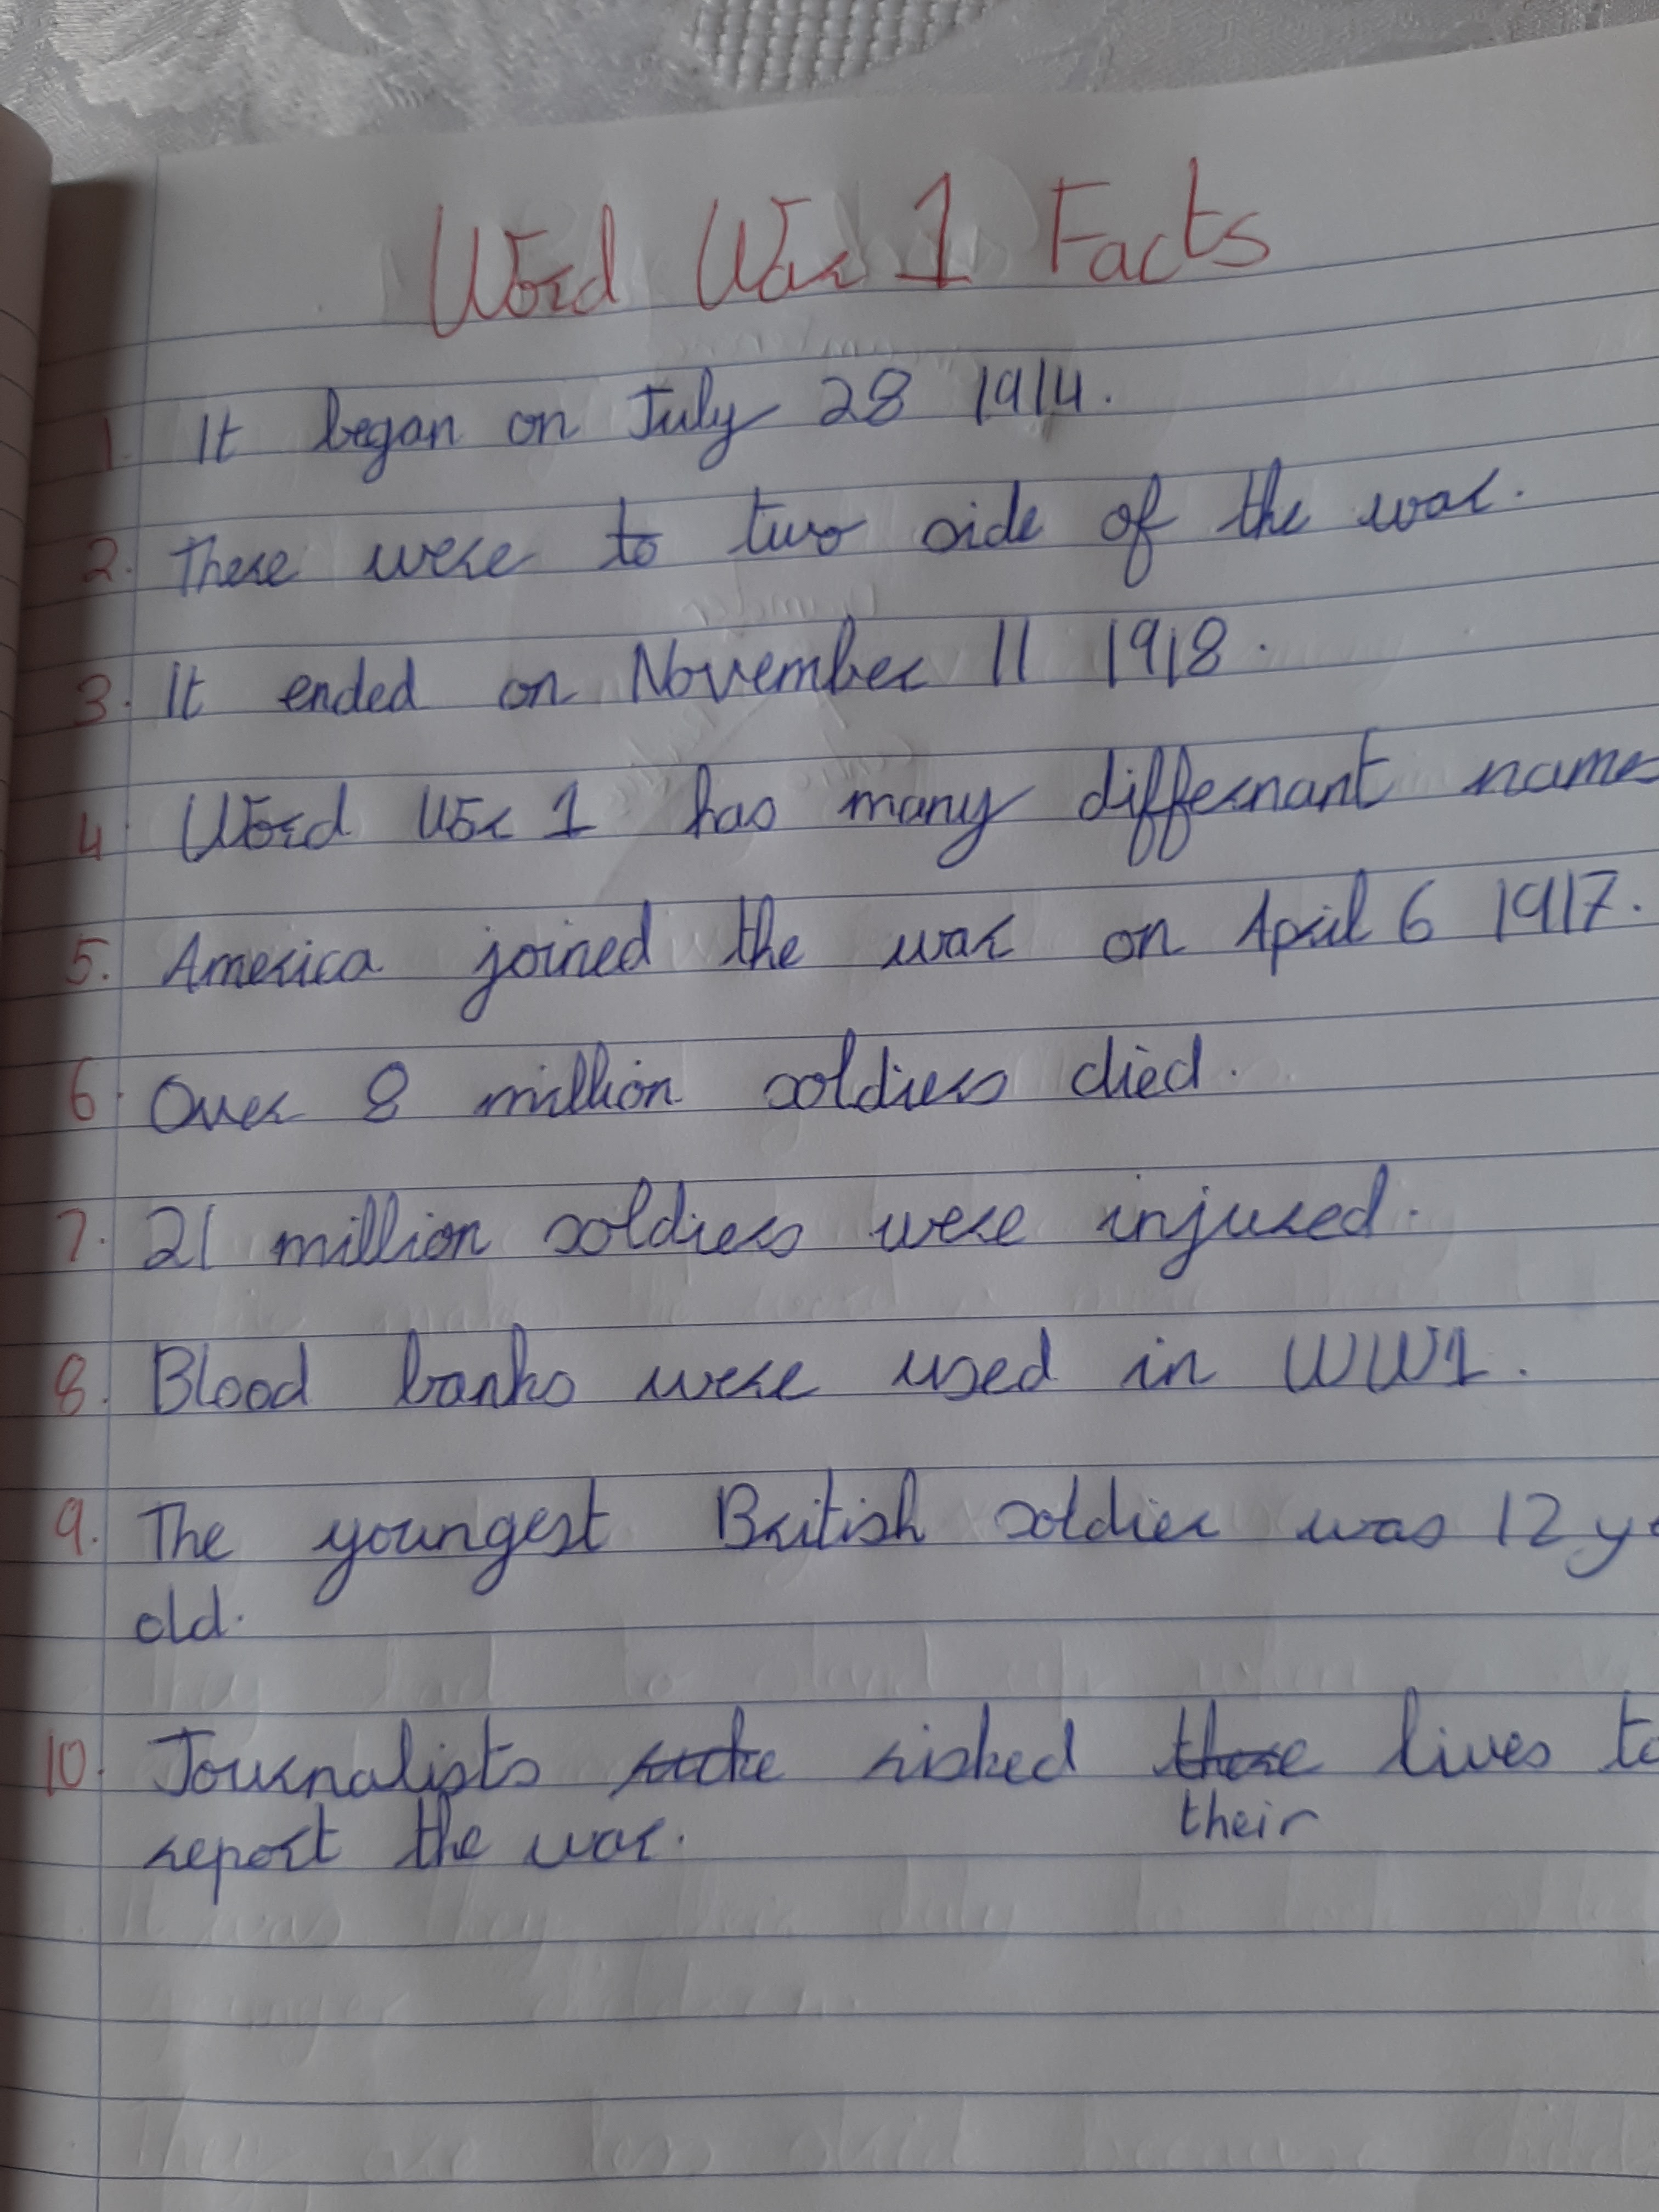 Word War 1 Facts
1. It began on July 28 1914.
2. There were to two side of the war.
3. It ended on November 11 1918.
4. Word War 1 has many differnant names
5. America joined the war on April 6 1917.
6. Over 8 million soldiers died.
7. 21 million soldiers were injured.
8. Blood banks were used in WW1.
9. The youngest British soldier was 12 ye
old.
10. Journalists risked there lives to
their
report the war.